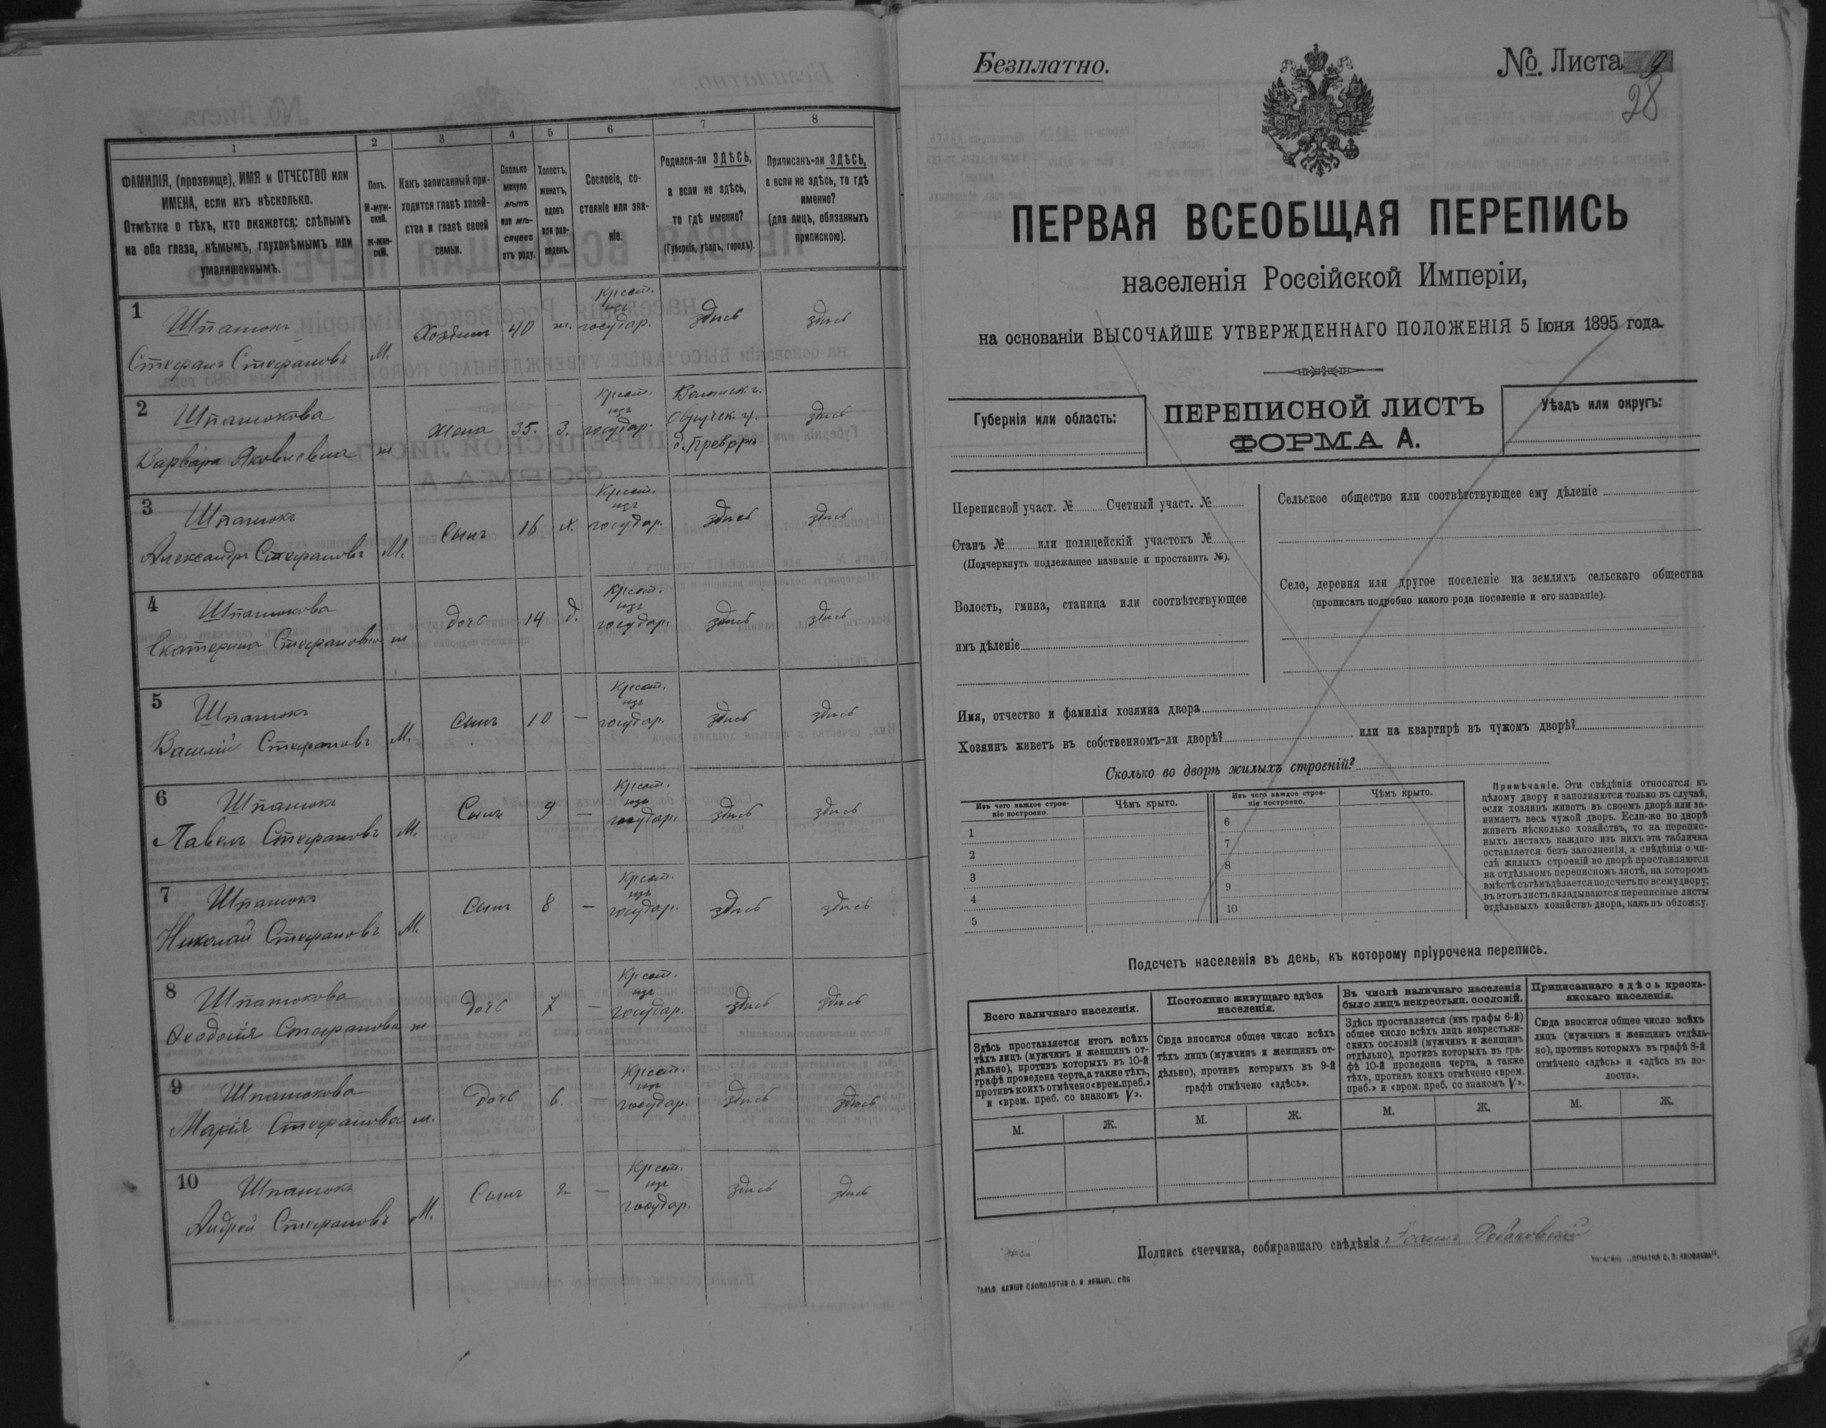 1
2
3
4
5
6
7
8
ФАМИЛІЯ, (прозвище), ИМЯ и ОТЧЕСТВО или
ИМЕНА, если ихъ нѣсколько.
Отмѣтка о тѣхъ, кто окажется: слѣпымъ
на оба глаза, нѣмымъ, глухонѣмымъ или
умалишеннымъ.
Полъ.
М-муж-
ской.
ж-жен-
скій.
Какъ записанный при-
ходится главѣ хозяй-
ства и главѣ своей
семьи.
Сколько
минуло
лѣтъ
или мѣ-
сяцевъ
отъ роду.
Холостъ,
женатъ,
вдовъ
или раз-
веденъ.
Сословіе, со-
стояніе или зва-
ніе.
Родился-ли ЗДѢСЬ,
а если не здѣсь,
то гдѣ именно?
(Губернія, уѣздъ, городъ).
Приписанъ-ли ЗДѢСЬ,
а если не здѣсь, то гдѣ
именно?
(для лицъ, обязанныхъ
припискою).
1
Шпанюкъ
Стефанъ Стефановъ
М.
Хозяинъ
40
ж.
Крест.
изъ
государ.
здѣсь
здѣсь
2
Шпанюкова
Варвара Яковлевна
ж
жена
35.
З.
Крест.
изъ
государ.
Волынск. г.
здѣсь
3
Шпанюкъ
Александръ Стефановъ
М.
Сынъ
16
х.
Крест.
изъ
государ.
здѣсь
здѣсь
4
Шпанюкова
Екатерина Стефановна
ж
дочь
14
д.
Крест.
изъ
государ.
здѣсь
здѣсь
5
Шпанюкъ
Василій Стефановъ
М.
Сынъ
10
—
Крест.
изъ
государ.
здѣсь
здѣсь
6
Шпанюкъ
Павелъ Стефановъ
М.
Сынъ
9
—
Крест.
изъ
государ.
здѣсь
здѣсь
7
Шпанюкъ
Николай Стефановъ
М.
Сынъ
8
—
Крест.
изъ
государ.
здѣсь
здѣсь
8
Шпанюкова
Ѳеодосія Стефанова
ж
дочь
7
—
Крест.
изъ
государ.
здѣсь
здѣсь
9
Шпанюкова
Марія Стефанова
ж.
дочь
6
—
Крест.
изъ
государ.
здѣсь
здѣсь
10
Шпанюкъ
Андрей Стефановъ
М.
Сынъ
2
—
Крест.
изъ
государ.
здѣсь
здѣсь
Безплатно.
№. Листа 9
28
ПЕРВАЯ ВСЕОБЩАЯ ПЕРЕПИСЬ
населенія Россійской Имперіи,
на основаніи ВЫСОЧАЙШЕ УТВЕРЖДЕННАГО ПОЛОЖЕНІЯ 5 Іюня 1895 года.
Губернія или область:
ПЕРЕПИСНОЙ ЛИСТЪ
ФОРМА А.
Уѣздъ или округъ:
Переписной участ. № Счетный участ. №
Станъ № или полицейскій участокъ №
(Подчеркнуть подлежащее названіе и проставить №).
Волость, гмина, станица или соотвѣтствующее
имъ дѣленіе
Сельское общество или соотвѣтствующее ему дѣленіе
Село, деревня или другое поселеніе на земляхъ сельскаго общества
(прописать подробно какого рода поселеніе и его названіе).
Имя, отчество и фамилія хозяина двора
Хозяинъ живетъ въ собственномъ-ли дворѣ? или на квартирѣ въ чужомъ дворѣ?
Сколько во дворѣ жилыхъ строеній?
Изъ чего каждое строе-
ніе построено.
Чѣмъ крыто.
Изъ чего каждое строе-
ніе построено.
Чѣмъ крыто.
1
2
3
4
5
6
7
8
9
10
Примѣчаніе. Эти свѣдѣнія относятся къ
цѣлому двору и заполняются только въ случаѣ,
если хозяинъ живетъ въ своемъ дворѣ или за-
нимаетъ весь чужой дворъ. Если-же во дворѣ
живетъ нѣсколько хозяйствъ, то на перепис-
ныхъ листахъ каждаго изъ нихъ эта табличка
оставляется безъ заполненія, а свѣдѣнія о чи-
слѣ жилыхъ строеній во дворѣ проставляются
на отдѣльномъ переписномъ листѣ, на которомъ
вмѣстѣ съ тѣмъ дѣлается подсчетъ по всему двору;
въ этотъ листъ вкладываются переписные листы
отдѣльныхъ хозяйствъ двора, какъ въ обложку.
Подсчетъ населенія въ день, къ которому пріурочена перепись.
Всего наличнаго населенія.
Постоянно живущаго здѣсь
населенія.
Въ числѣ наличнаго населенія
было лицъ некрестьян. сословій.
Приписаннаго здѣсь кресть-
янскаго населенія.
Здѣсь проставляется итогъ всѣхъ
тѣхъ лицъ (мужчинъ и женщинъ от-
дѣльно), противъ которыхъ въ 10-й
графѣ проведена черта, а также тѣхъ,
противъ коихъ отмѣчено «врем. преб.»
и «врем. преб. со знакомъ V».
Сюда вносится общее число всѣхъ
тѣхъ лицъ (мужчинъ и женщинъ от-
дѣльно), противъ которыхъ въ 9-й
графѣ отмѣчено «здѣсь».
Здѣсь проставляется (изъ графы 6-й)
общее число всѣхъ лицъ некрестьян-
скихъ сословій (мужчинъ и женщинъ
отдѣльно), противъ которыхъ въ гра-
фѣ 10-й проведена черта, а также
тѣхъ, противъ коихъ отмѣчено «врем.
преб.» и «врем. преб. со знакомъ V».
Сюда вносится общее число всѣхъ
лицъ (мужчинъ и женщинъ отдѣль-
но), противъ которыхъ въ графѣ 8-й
отмѣчено «здѣсь» и «здѣсь въ во-
лости».
М.
Ж.
М.
Ж.
М.
Ж.
М.
Ж.
Подпись счетчика, собиравшаго свѣдѣнія